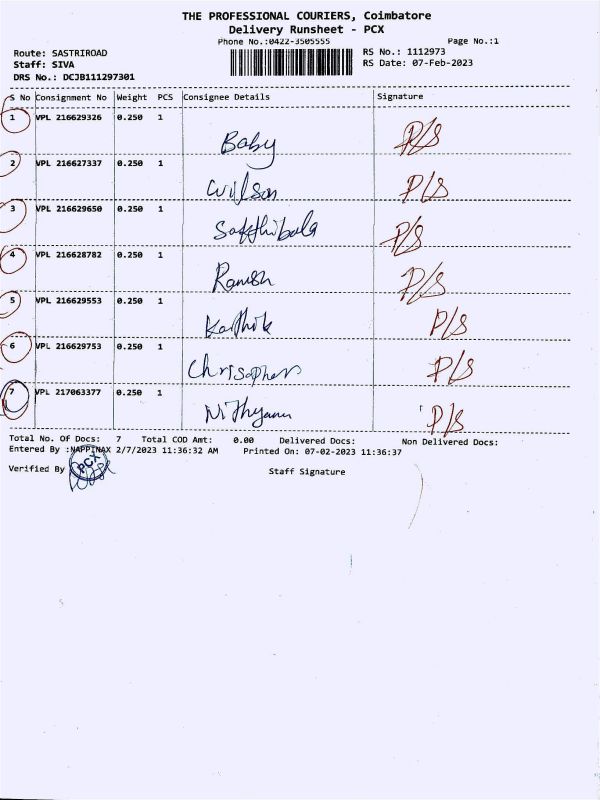 THE PROFESSIONAL COURIERS, Coimbatore
Delivery Runsheet - PCX
Phone No.:0422-3505555
Page No.:1
Route: SASTRIROAD
RS No.: 1112973
Staff: SIVA
RS Date: 07-Feb-2023
DRS No.: DCJB111297301
S No Consignment No Weight PCS Consignee Details Signature
1 VPL 216629326 0.250 1
Baby P/S
2 VPL 216627337 0.250 1
Wilson P/S
3 VPL 216629650 0.250 1
Sakthibala P/S
4 VPL 216628782 0.250 1
Ramesh P/S
5 VPL 216629553 0.250 1
Karthik P/S
6 VPL 216629753 0.250 1
P/S
7 VPL 217063377 0.250 1
P/S
Total No. Of Docs: 7 Total COD Amt: 0.00 Delivered Docs: Non Delivered Docs:
Entered By :NAPPINAX 2/7/2023 11:36:32 AM Printed On: 07-02-2023 11:36:37
Verified By PCX Staff Signature